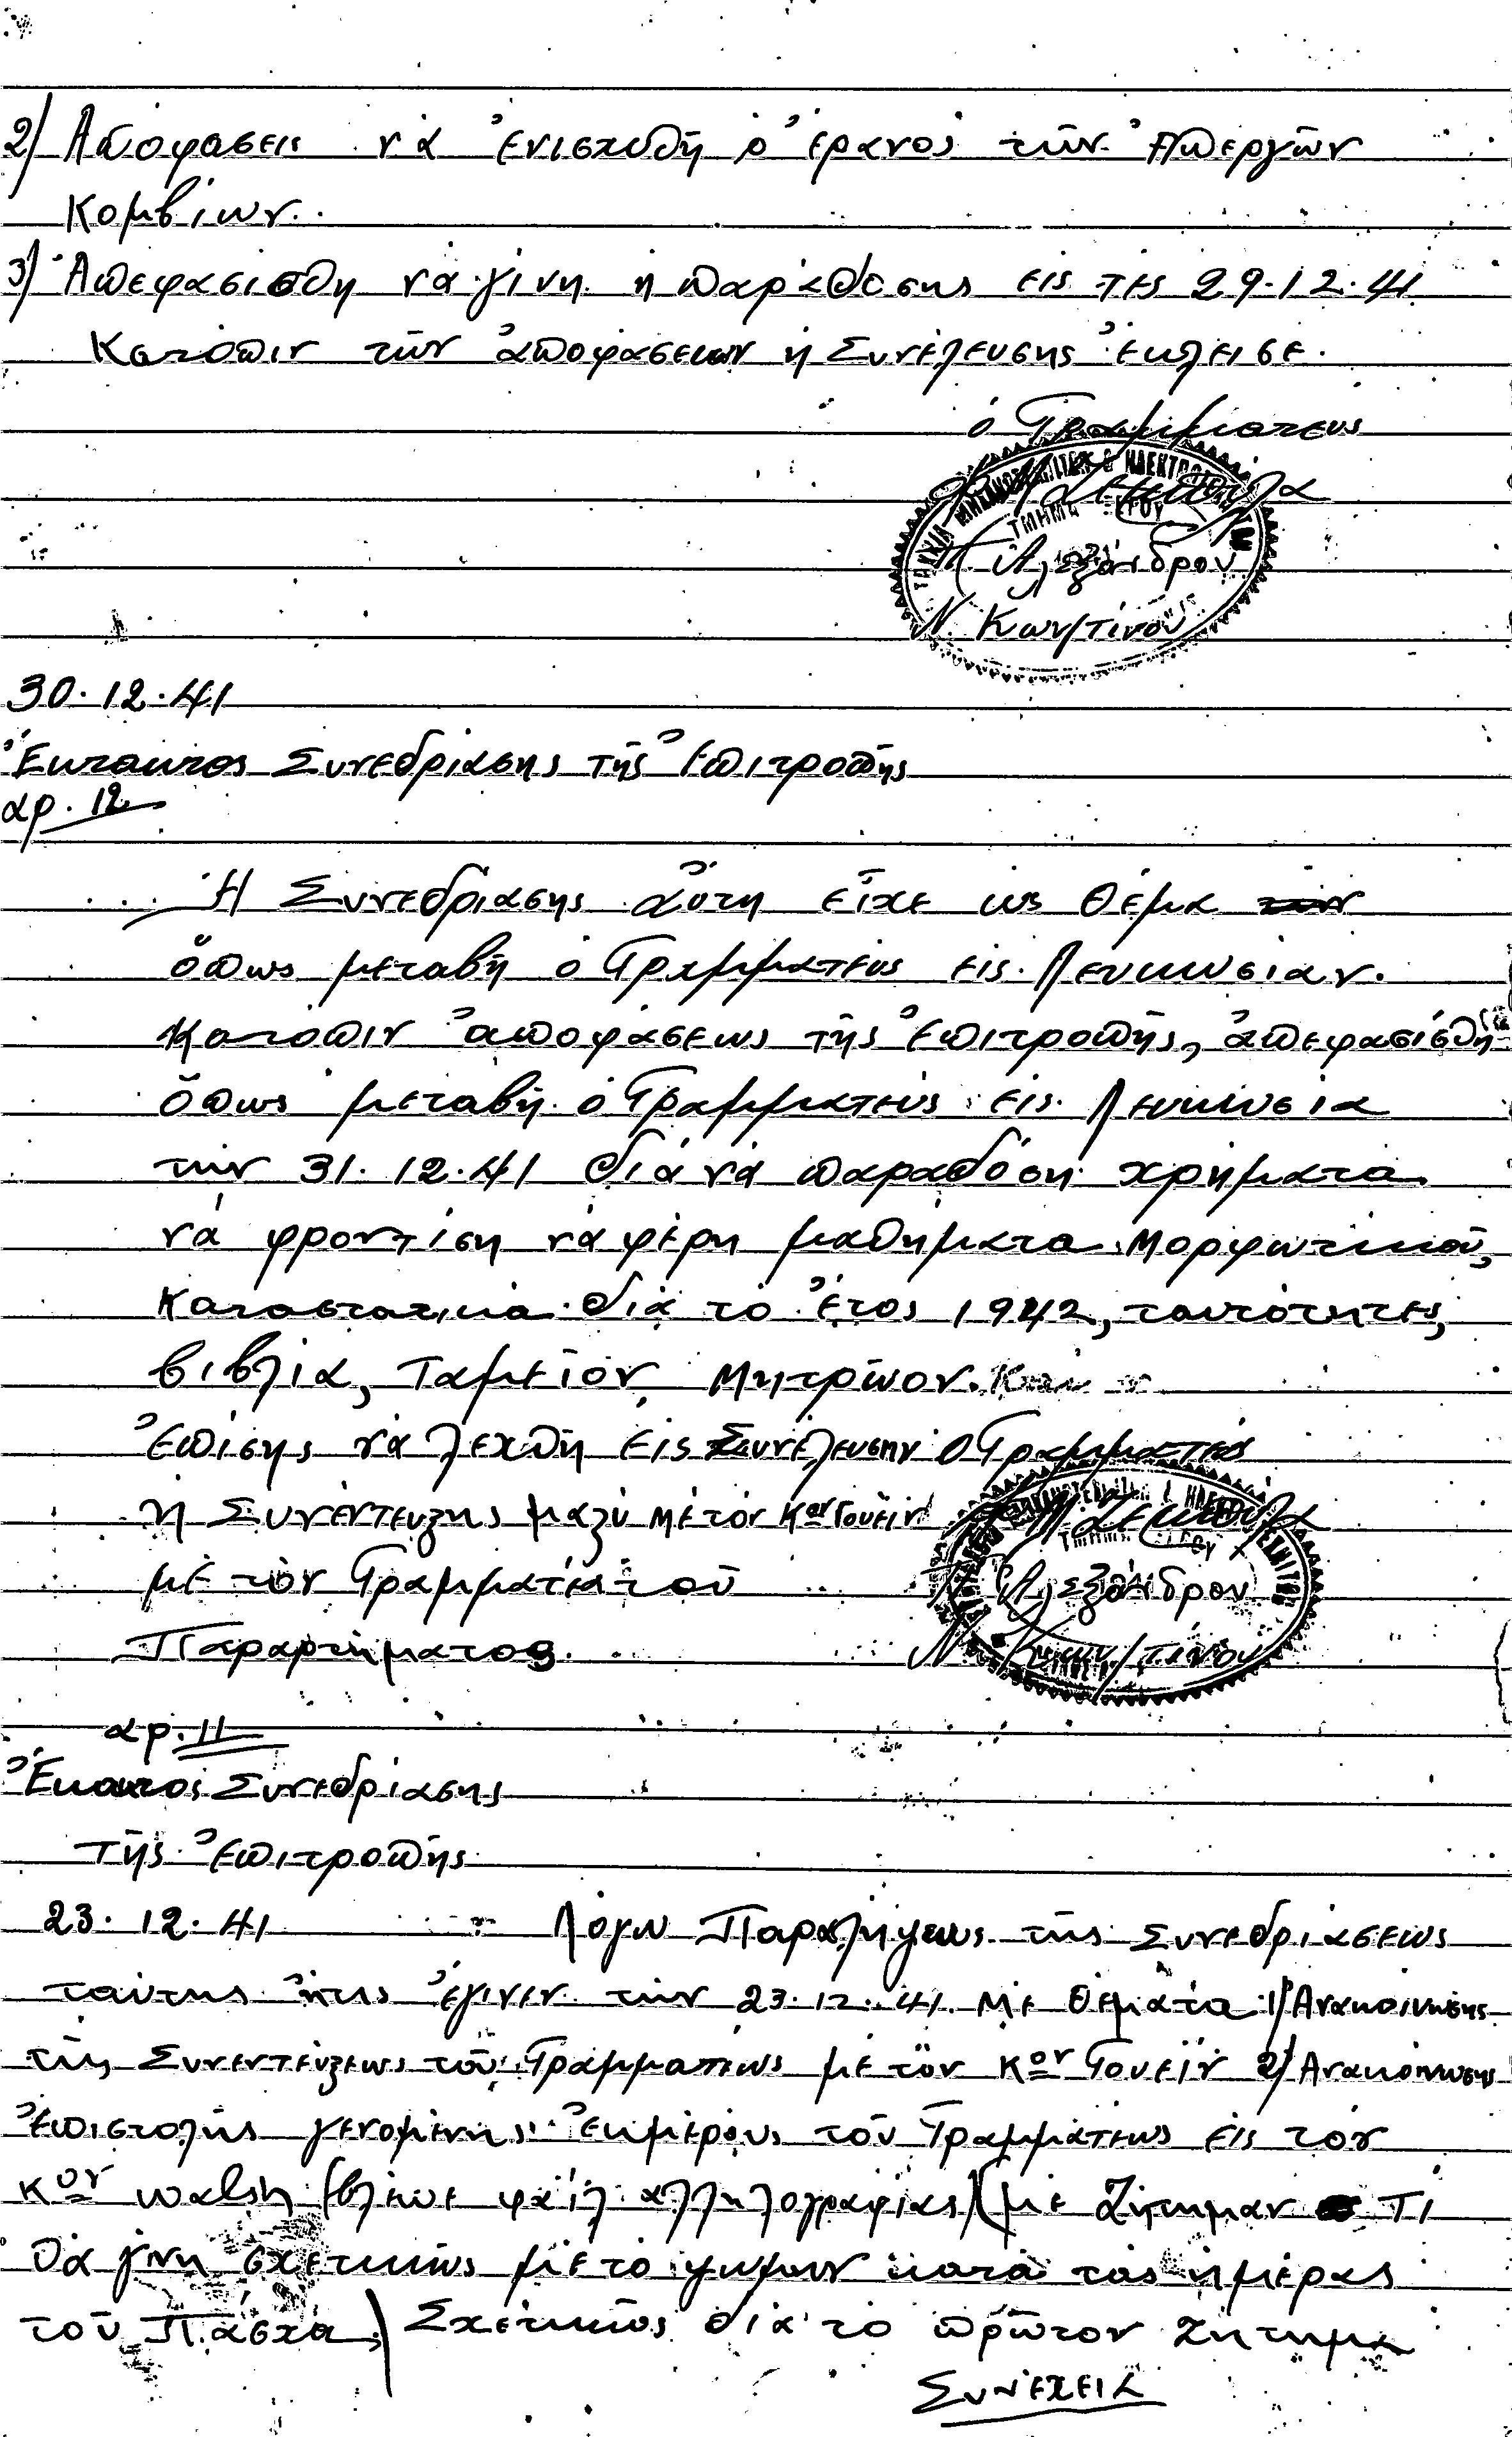 2) Απόφασεις νά ἐνισχυθῆ ὁ ἔρανος τῶν Ἀπεργῶν
Κομβίων.
3) Ἀπεφασίσθη νά γίνη ἡ παράδοσης εἰς τές 29.12.41
Κατόπιν τῶν ἀποφάσεων ἡ Συνέλευσης ἔκλεισε.
ὁ Γραμματεύς
Π. Ἀλεξάνδρου
Ν. Κων/τίνου
30.12.41
Ἔκτακτος Συνεδρίασης τῆς Ἐπιτροπῆς
αρ. 12
Ἡ Συνεδρίασης αὔτη εἶχε ὡς θέμα τῶν
ὅπως μεταβῆ ὁ Γραμματεύς εἰς Λευκωσίαν.
Κατόπιν ἀποφάσεως τῆς Ἐπιτροπῆς, ἀπεφασίσθη
ὅπως μεταβῆ ὁ Γραμματεύς εἰς Λευκωσία
τήν 31.12.41 διά νά παραδόση χρήματα
νά φροντίση νά φέρη μαθήματα Μορφωτικοῦ,
Καταστατικά διά τό ἔτος 1942, ταυτότητες,
βιβλία, Ταμεῖον, Μητρῶον. Και
Ἐπίσης νά λεχθῆ εἰς Συνέλευσην ὁ Γραμματεύς
ἡ Συνέντευξης μαζύ μέ τόν Κον Γουεΐν
μέ τόν Γραμματέα τοῦ
Παραρτήματος.
Π. Ἀλεξάνδρου
Ν. Κων/τίνου
αρ. 11
Ἔκτακτος Συνεδρίασης
Τῆς Ἐπιτροπῆς
23.12.41 Λόγω Παραλήψεως τῆς Συνεδριάσεως
ταύτης ἥτις ἔγινεν τήν 23.12.41. Μέ θέματα 1) Ἀνακοίνωσης
τῆς Συνεντεύξεως τοῦ Γραμματέως μέ τόν Κον Γουεΐν 2) Ανακοίνωσης
Ἐπιστολῆς γενομένης ἐκμέρους τοῦ Γραμμάτεως εἰς τόν
Κον (βλέπε φάϊλ αλληλογραφίας) (μέ Ζήτημαν Τί
θά γίνη σχετικῶς μέ τό ψωμίν κατά τάς ἡμέρας
τοῦ Πάσχα) Σχετικῶς διά τό πρῶτον Ζήτημα
Συνέχεια